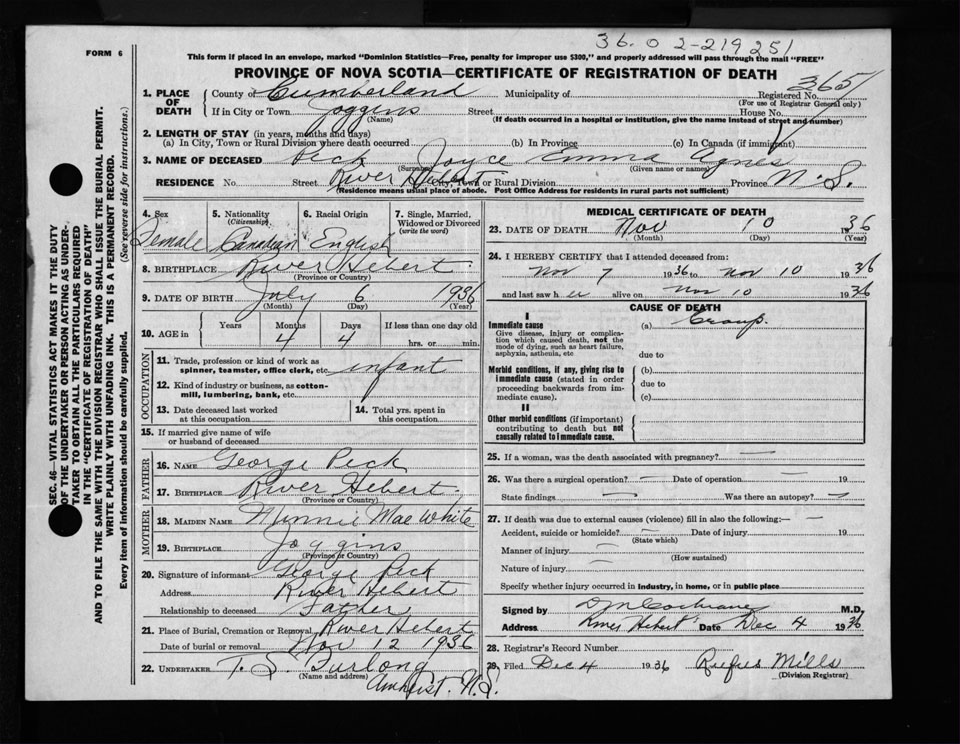 36.02-219251
FORM 6
This form if placed in an envelope, marked "Dominion Statistics—Free, penalty for improper use $300," and properly addressed will pass through the mail "FREE"
PROVINCE OF NOVA SCOTIA—CERTIFICATE OF REGISTRATION OF DEATH
1. PLACE OF DEATH
County of Cumberland Municipality of Registered No. 365
(For use of Registrar General only)
If in City or Town Joggins Street House No.
(Name) (If death occurred in a hospital or institution, give the name instead of street and number)
2. LENGTH OF STAY (in years, months and days)
(a) In City, Town or Rural Division where death occurred (b) In Province (c) In Canada (if immigrant)
3. NAME OF DECEASED Peck Joyce Emma Agnes
(Surname) (Given name or names)
RESIDENCE No. Street River Hebert City, Town or Rural Division Province N.S.
(Residence means usual place of abode. Post Office Address for residents in rural parts not sufficient)
4. Sex 5. Nationality (Citizenship) 6. Racial Origin 7. Single, Married, Widowed or Divorced (write the word)
Female Canadian English
8. BIRTHPLACE River Hebert
(Province or Country)
9. DATE OF BIRTH July 6 1936
(Month) (Day) (Year)
10. AGE in Years Months Days If less than one day old
4 4 hrs. or min.
OCCUPATION
11. Trade, profession or kind of work as spinner, teamster, office clerk, etc. infant
12. Kind of industry or business, as cotton-mill, lumbering, bank, etc.
13. Date deceased last worked at this occupation
14. Total yrs. spent in this occupation
15. If married give name of wife or husband of deceased
FATHER
16. NAME George Peck
17. BIRTHPLACE River Hebert
(Province or Country)
MOTHER
18. MAIDEN NAME Minnie Mae White
19. BIRTHPLACE Joggins
(Province or Country)
20. Signature of informant George Peck
Address River Hebert
Relationship to deceased Father
21. Place of Burial, Cremation or Removal River Hebert
Date of burial or removal Nov 12 1936
22. UNDERTAKER T. S. Furlong
(Name and address)
Amherst. N.S.
MEDICAL CERTIFICATE OF DEATH
23. DATE OF DEATH Nov 10 1936
(Month) (Day) (Year)
24. I HEREBY CERTIFY that I attended deceased from:
Nov 7 1936 to Nov 10 1936
and last saw her alive on Nov 10 1936
CAUSE OF DEATH
I
Immediate cause
Give disease, injury or complication which caused death, not the mode of dying, such as heart failure, asphyxia, asthenia, etc
(a) Croup.
due to
Morbid conditions, if any, giving rise to immediate cause (stated in order proceeding backwards from immediate cause).
(b)
due to
(c)
II
Other morbid conditions (if important) contributing to death but not causally related to immediate cause.
25. If a woman, was the death associated with pregnancy? —
26. Was there a surgical operation? — Date of operation 19
State findings — Was there an autopsy? —
27. If death was due to external causes (violence) fill in also the following:—
Accident, suicide or homicide? — Date of injury 19
(State which)
Manner of injury —
(How sustained)
Nature of injury —
Specify whether injury occurred in industry, in home, or in public place
Signed by D M Cochrane M.D.
Address River Hebert Date Dec 4 1936
28. Registrar's Record Number
29. Filed Dec 4 1936 Rufus Mills
(Division Registrar)
SEC. 46—VITAL STATISTICS ACT MAKES IT THE DUTY
OF THE UNDERTAKER OR PERSON ACTING AS UNDER-
TAKER TO OBTAIN ALL THE PARTICULARS REQUIRED
IN THE "CERTIFICATE OF REGISTRATION OF DEATH"
AND TO FILE THE SAME WITH THE DIVISION REGISTRAR WHO SHALL ISSUE THE BURIAL PERMIT.
WRITE PLAINLY WITH UNFADING INK. THIS IS A PERMANENT RECORD.
Every item of information should be carefully supplied. (See reverse side for instructions.)